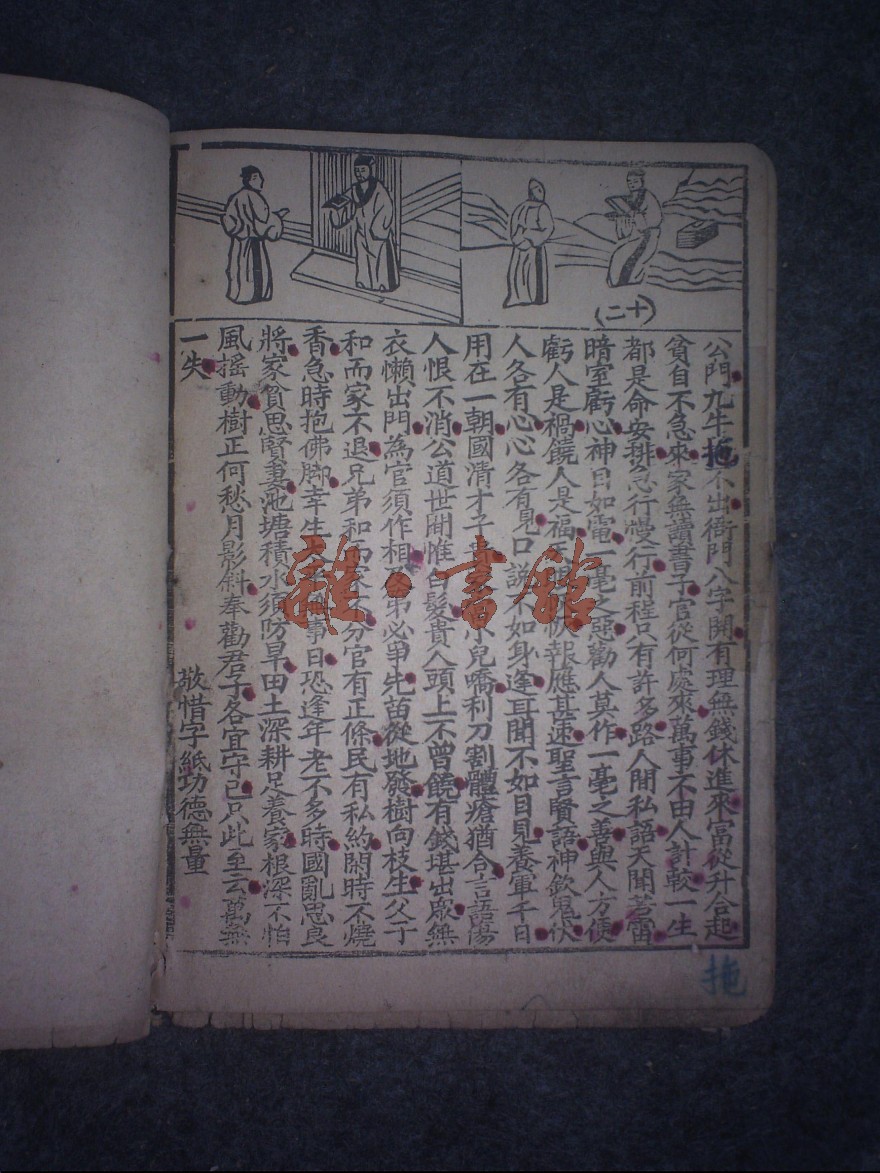 （十二）
公門九牛拖不出衙門八字開有理無錢休進來富從升合起
貧自不急來家無讀書子官從何處來萬事不由人計較一生
都是命安排急行慢行前程只有許多路人間私語天聞若雷
暗室虧心神目如電一毫之惡勸人莫作一毫之善與人方便
虧人是禍饒人是福天恢報應甚速聖言賢語神欽鬼伏
人各有心心各有見口說不如身逢耳聞不如目見養軍千日
用在一朝國清才子貴小兒嬌利刀割體瘡猶合言語傷
人恨不消公道世間惟白髮貴人頭上不曾饒有錢堪出眾無
衣懶出門為官須作相及第必爭先苗從地發樹向枝生父子
和而家不退兄弟和而家不分官有正條民有私約閒時不燒
香急時抱佛脚幸生無事日恐逢年老不多時國亂思良
將家貧思賢妻池塘積水須防旱田土深耕足養家根深不怕
風搖動樹正何愁月影斜奉勸君子各宜守己只此至云萬無
一失
敬惜字紙功德無量
拖
雜·書館